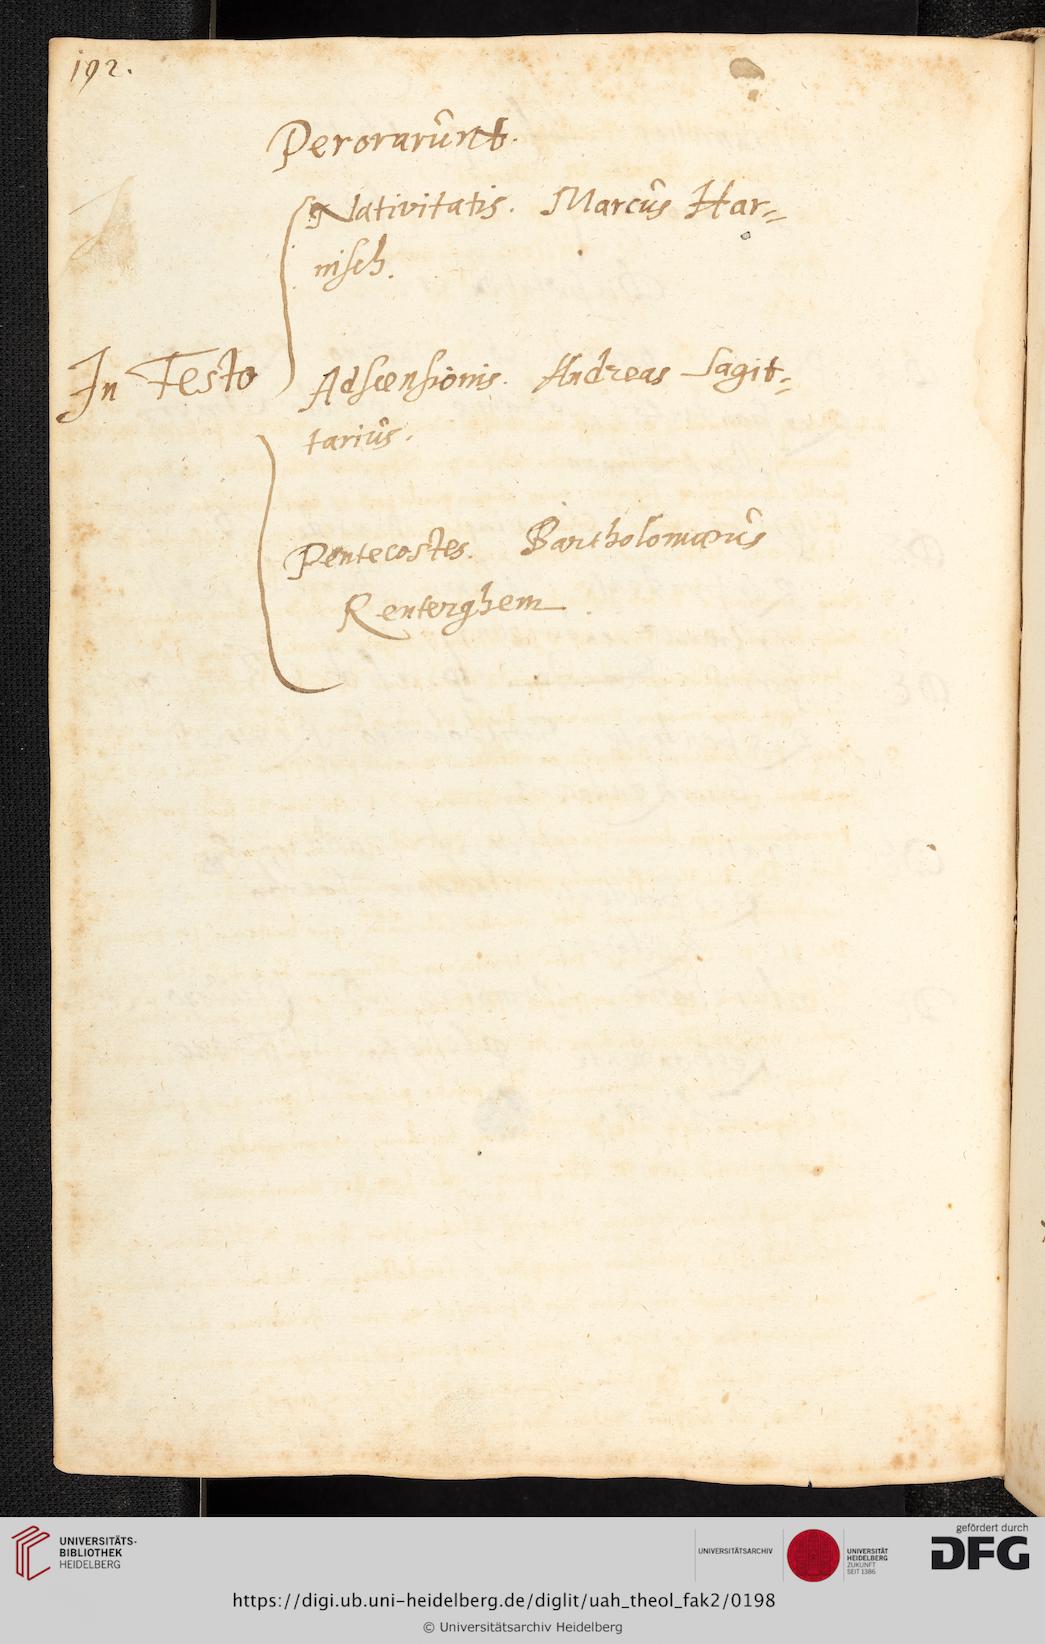 192.
Perorarunt.
Nativitatis. Marcus Har=
nisch.
In Festo
Adscensionis. Andreas Sagit=
tarius.
Pentecostes. Bartholomæus
Renterghem.
UNIVERSITÄTS-
BIBLIOTHEK
HEIDELBERG
UNIVERSITÄTSARCHIV
UNIVERSITÄT
HEIDELBERG
ZUKUNFT
SEIT 1386
gefördert durch
DFG
https://digi.ub.uni-heidelberg.de/diglit/uah_theol_fak2/0198
© Universitätsarchiv Heidelberg